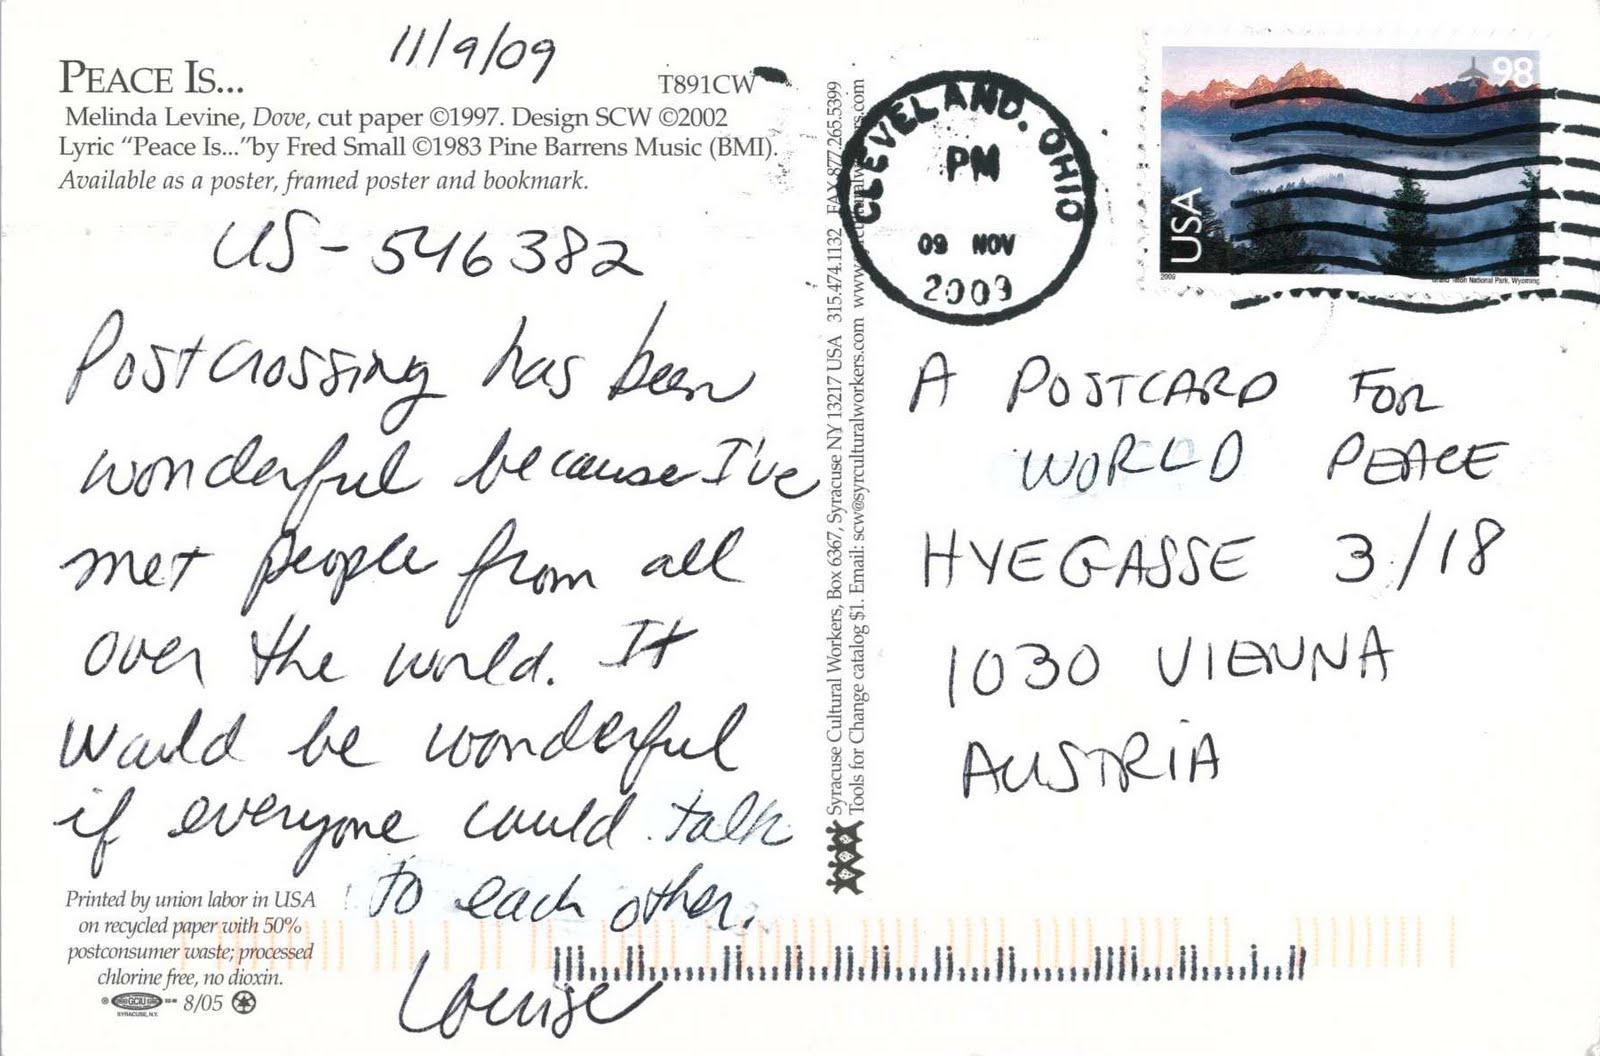 11/9/09
PEACE IS...
T891CW
Melinda Levine, Dove, cut paper ©1997. Design SCW ©2002
Lyric “Peace Is...”by Fred Small ©1983 Pine Barrens Music (BMI).
Available as a poster, framed poster and bookmark.
US-546382
Postcrossing has been
wonderful because I've
met people from all
over the world. It
would be wonderful
if everyone could talk
to each other.
Louise
Printed by union labor in USA
on recycled paper with 50%
postconsumer waste; processed
chlorine free, no dioxin.
GCIU
SYRACUSE, N.Y.
8/05
Syracuse Cultural Workers, Box 6367, Syracuse NY 13217 USA 315.474.1132 FAX 877.265.5399
Tools for Change catalog $1. Email: scw@syrculturalworkers.com
CLEVELAND, OHIO
PM
09 NOV
2009
98
USA
2009
Grand Teton National Park, Wyoming
A POSTCARD FOR
WORLD PEACE
HYEGASSE 3/18
1030 VIENNA
AUSTRIA